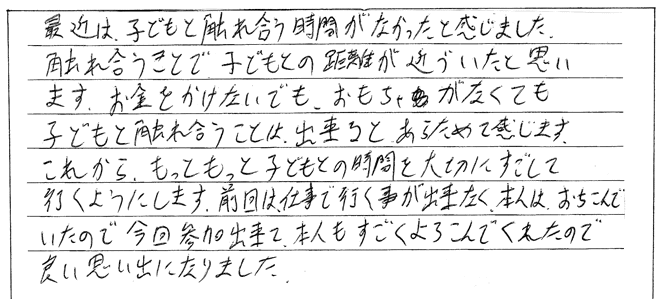 最近は、子どもと触れ合う時間がなかったと感じました。
触れ合うことで子どもとの距離が近づいたと思い
ます。お金をかけないでも、おもちゃがなくても
子どもと触れ合うことは、出来ると、あらためて感じます。
これから、もっともっと子どもとの時間を大切にすごして
行くようにします。前回は、仕事で行く事が出来なく、本人は、おちこんで
いたので今回参加出来て、本人もすごくよろこんでくれたので
良い思い出になりました。